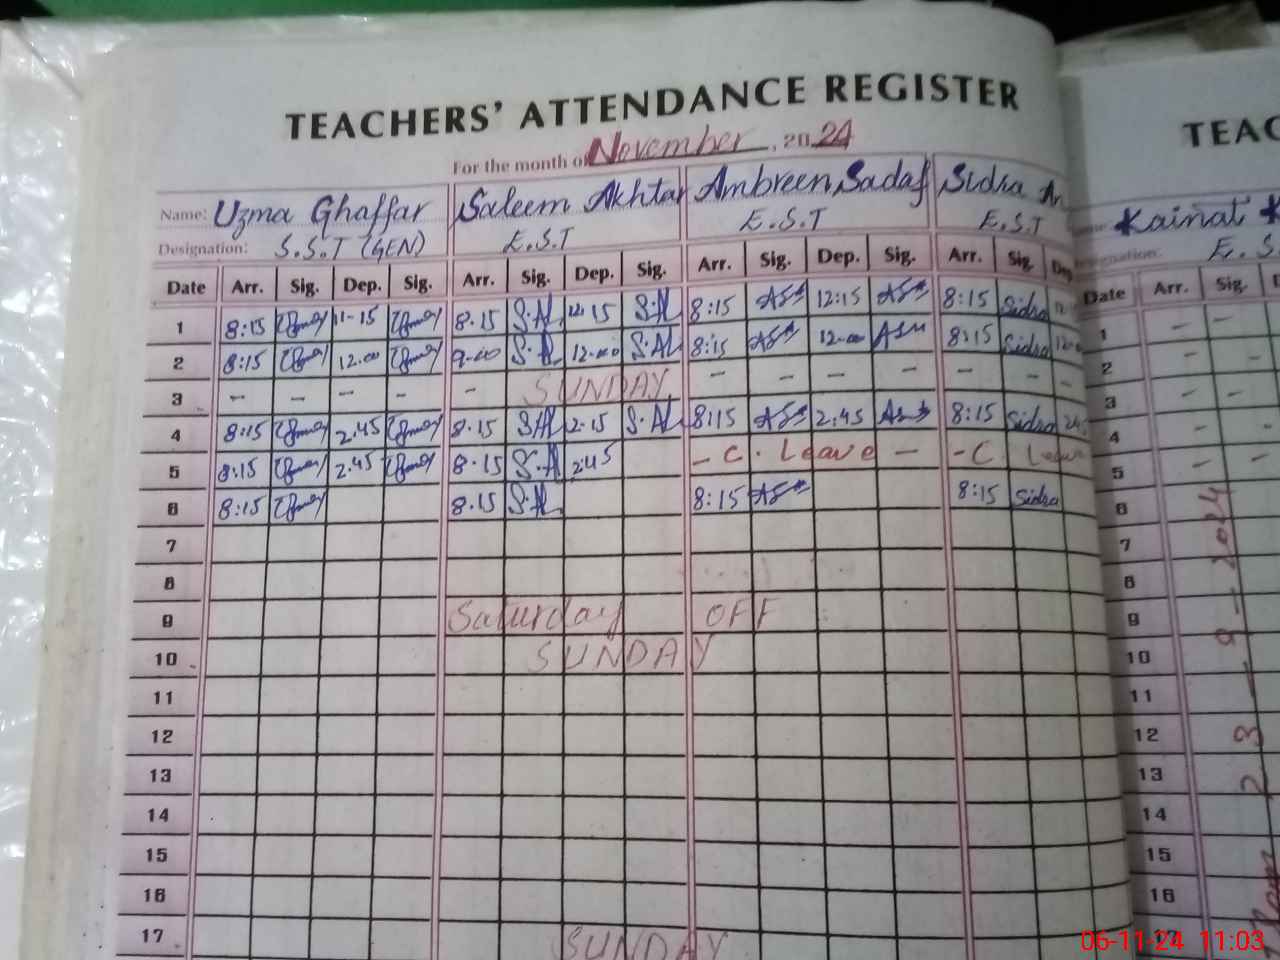 TEACHERS' ATTENDANCE REGISTER
TEAC
For the month of November, 2024
Name: Uzma Ghaffar Saleem Akhtar Ambreen Sadaf Sidra Kainat
Designation: S.S.T (GEN) E.S.T E.S.T E.S.T E.S
Date Arr. Sig. Dep. Sig. Arr. Sig. Dep. Sig. Arr. Sig. Dep. Sig. Arr. Sig. Dep Date Arr. Sig.
1 8:15 11-15 8.15 S.AL 12.15 S.AL 8:15 12:15 8:15 Sidra 1 - -
2 8:15 12.00 9-00 S.AL 12.00 S.AL 8:15 12.00 8:15 Sidra 2 - -
3 - - - - - SUNDAY - - - - - - - 3 - -
4 8:15 2.45 8.15 S.AL 2.15 S.AL 8:15 2.45 8:15 Sidra 2.45 4 - -
5 8:15 2.45 8.15 S.AL 2:45 - C. Leave - - C. Leave 5 - -
6 8:15 8.15 S.AL 8:15 8:15 Sidra 6
7 7
8 8
9 Saturday OFF 9
10 SUNDAY 10
11 11
12 12
13 13
14 14
15 15
16 16
17 SUNDAY 17
23-9-2024
06-11-24 11:03